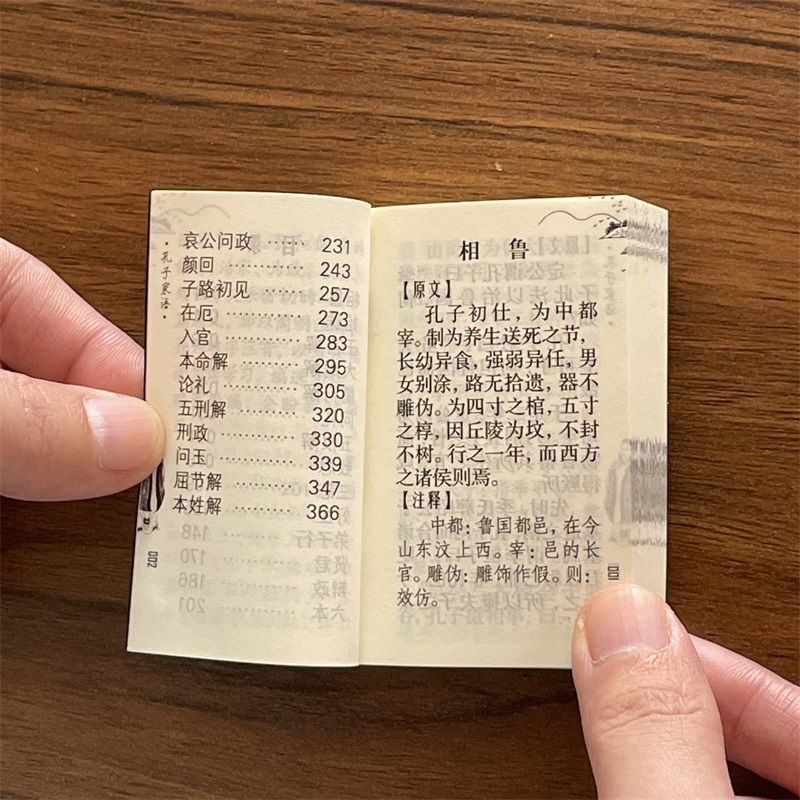 ·孔子家语·
哀公问政 ········ 231
颜回 ············ 243
子路初见 ········ 257
在厄 ············ 273
入官 ············ 283
本命解 ·········· 295
论礼 ············ 305
五刑解 ·········· 320
刑政 ············ 330
问玉 ············ 339
屈节解 ·········· 347
本姓解 ·········· 366
002
相 鲁
【原文】
孔子初仕，为中都
宰。制为养生送死之节，
长幼异食，强弱异任，男
女别涂，路无拾遗，器不
雕伪。为四寸之棺，五寸
之椁，因丘陵为坟，不封
不树。行之一年，而西方
之诸侯则焉。
【注释】
中都：鲁国都邑，在今
山东汶上西。宰：邑的长
官。雕伪：雕饰作假。则：
效仿。
001